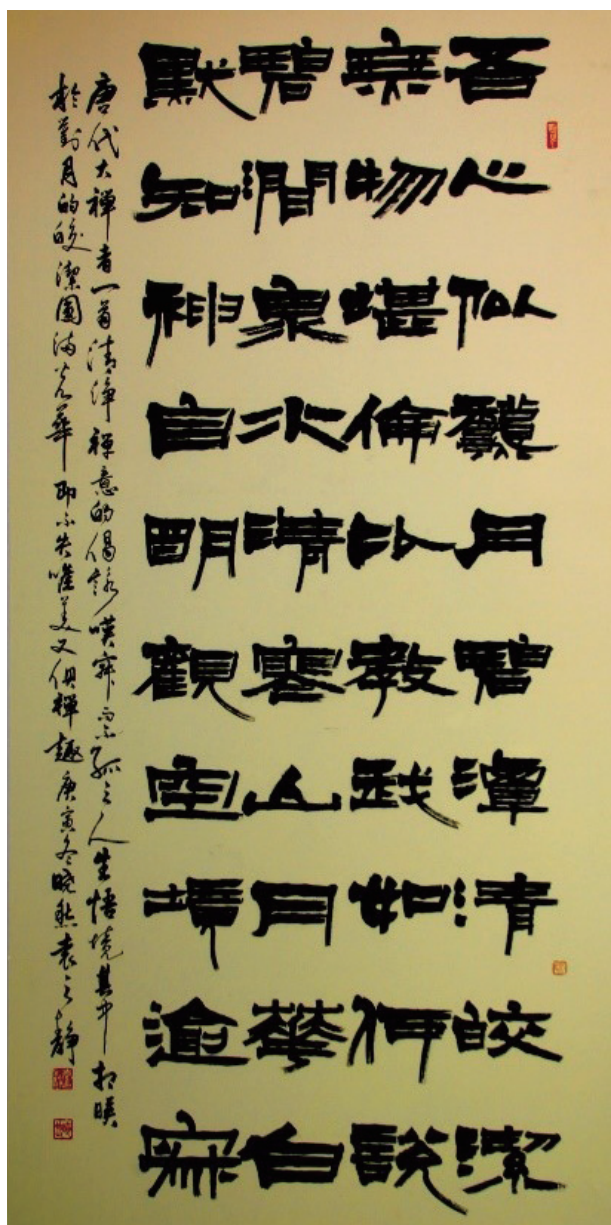 吾心似龝月碧潭清皎潔
無物堪倫比教我如何說
碧澗泉水清寒山月華白
默知神自明觀空境逾寂
唐代大禪者一首清淨禪意的偈詠嘆寂孤之人生悟境其中相映
於對月的皎潔圓滿光華即不失唯美又俱禪趣庚寅冬曉然袁之靜